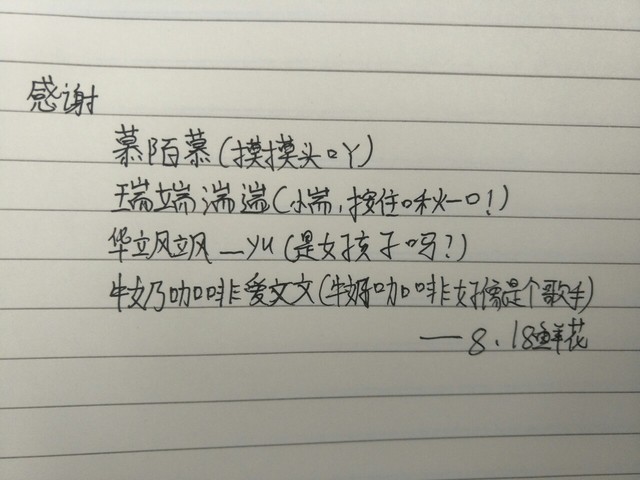 感谢
慕陌慕(摸摸头吖)
瑞端湍遄(小喘,按住啾一口!)
华飒飒_yu(是女孩子吗?)
牛奶咖啡爱文文(牛奶咖啡好像是个歌手)
——8.18鲜花